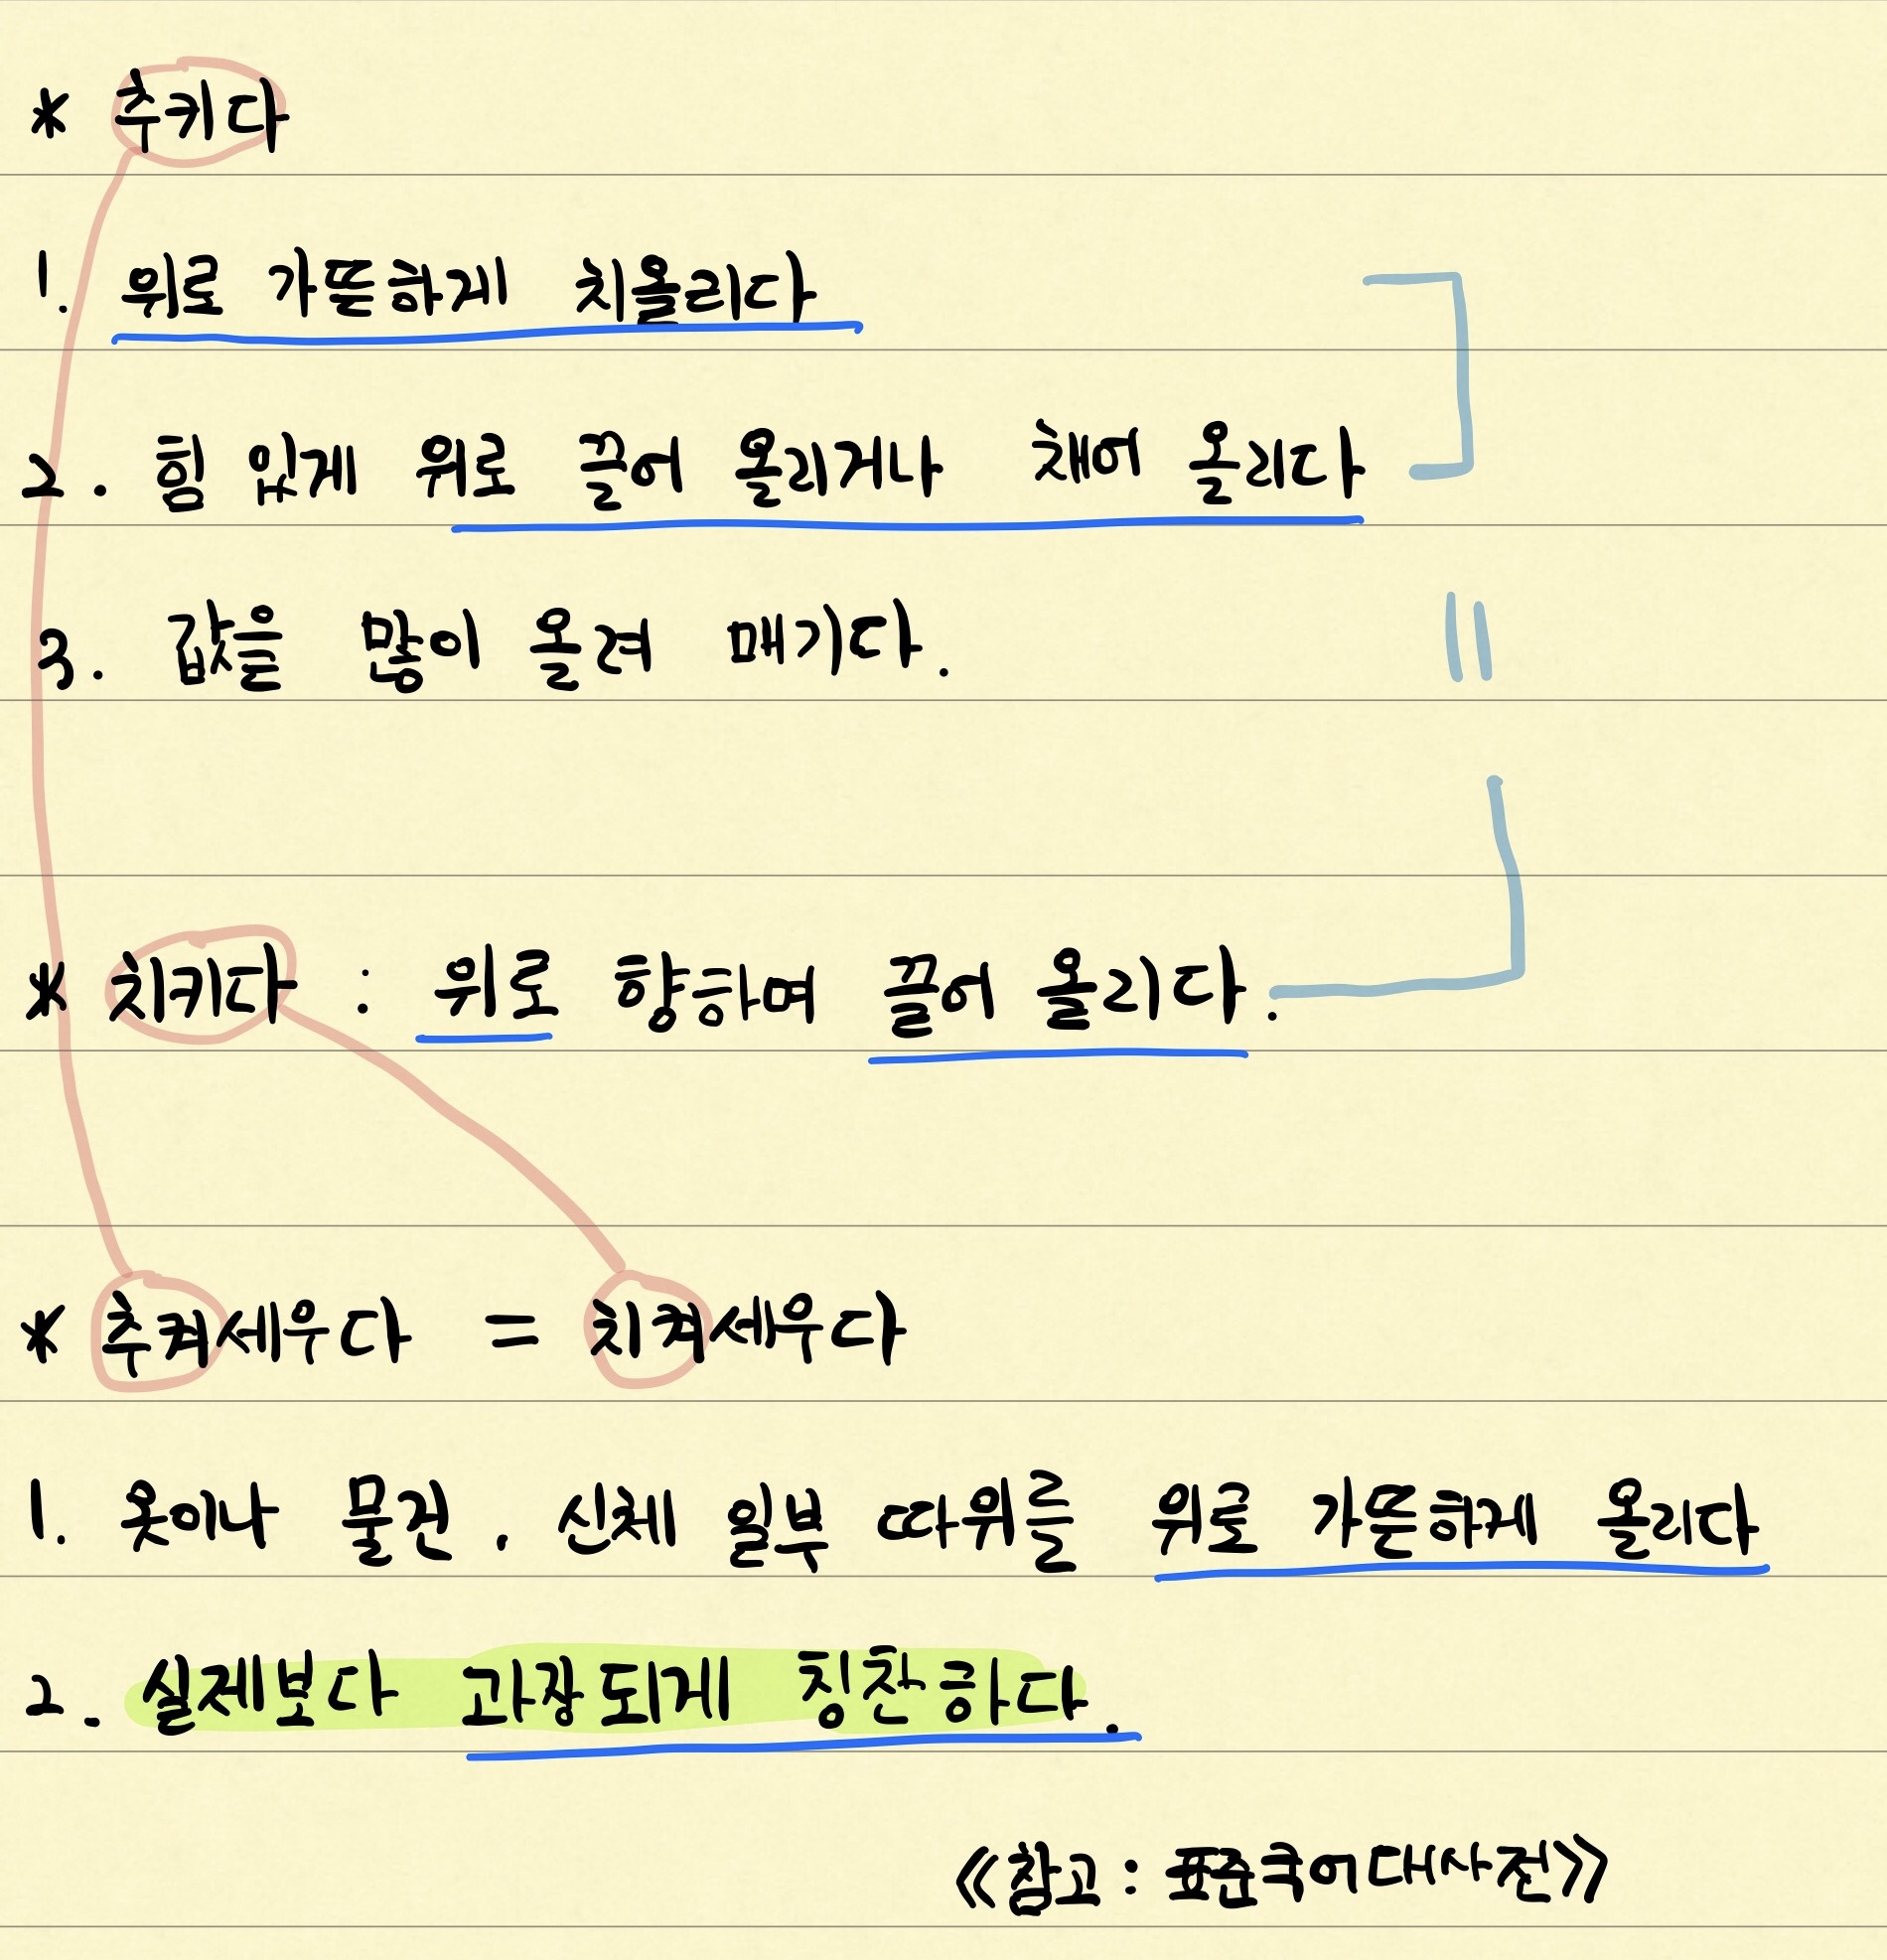 * 추키다
1. 위로 가뜬하게 치올리다
2. 힘 있게 위로 끌어 올리거나 채어 올리다
3. 값을 많이 올려 매기다.
* 치키다 : 위로 향하여 끌어 올리다.
* 추켜세우다 = 치켜세우다
1. 옷이나 물건. 신체 일부 따위를 위로 가뜬하게 올리다
2. 실제보다 과장되게 칭찬하다.
《참고 : 표준국어대사전》